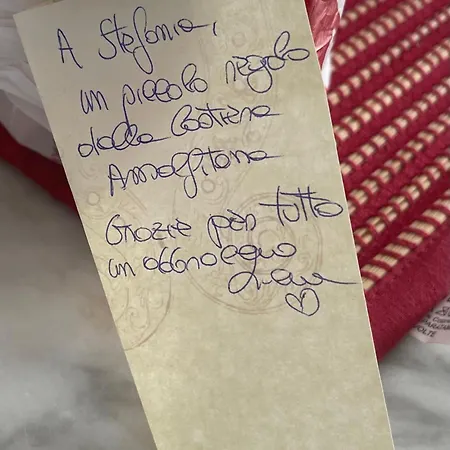 A Stefania,
un piccolo regalo
dalla Costiera
Amalfitana
Grazie per tutto
un abbraccio